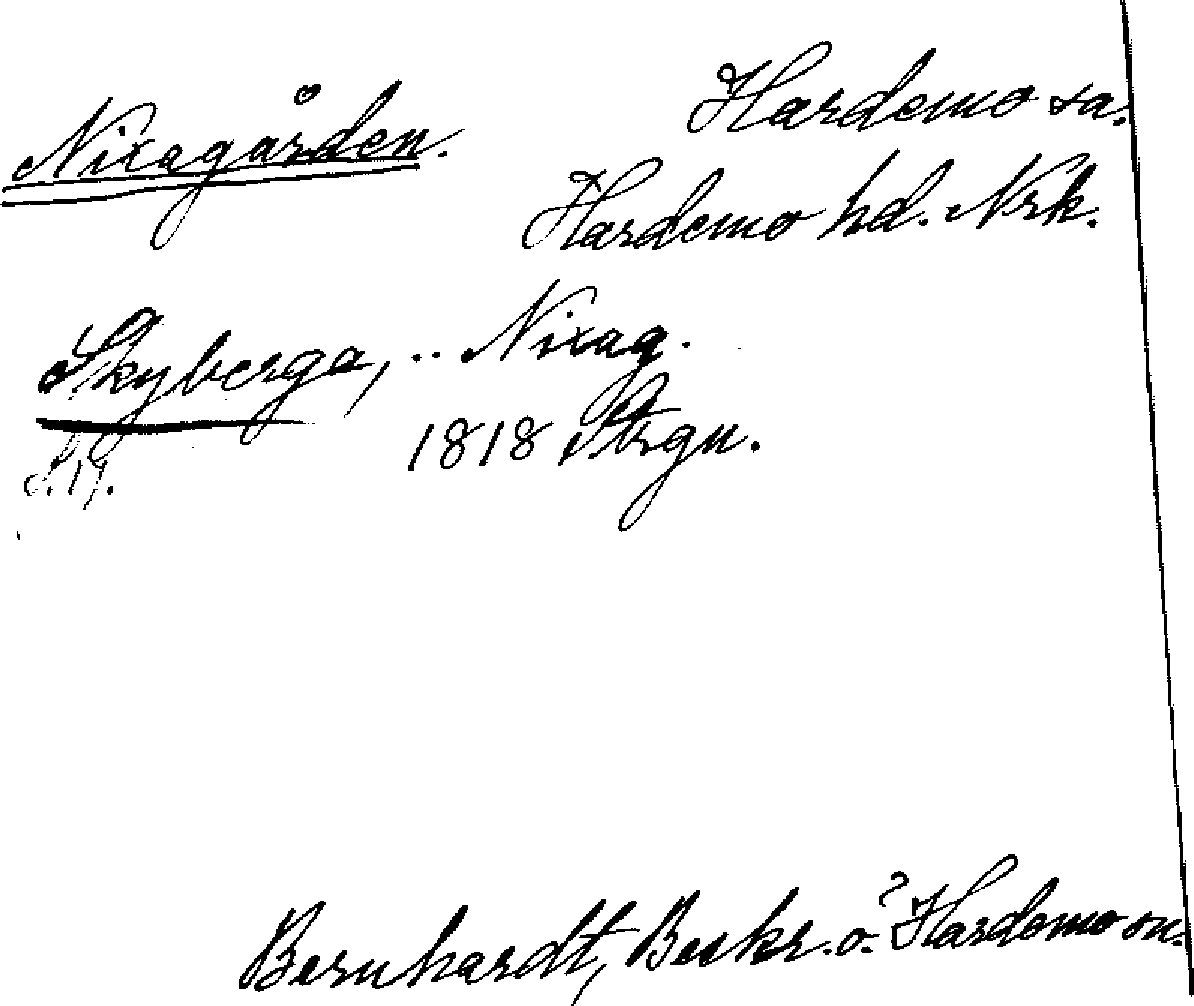 Nixagården.
Hardemo sn.
Hardemo hd. Nrk.
Skyberga, .. Nixag.
1818 Strgn.
S. 17.
Bernhardt, Beskr. ö. Hardemo sn.